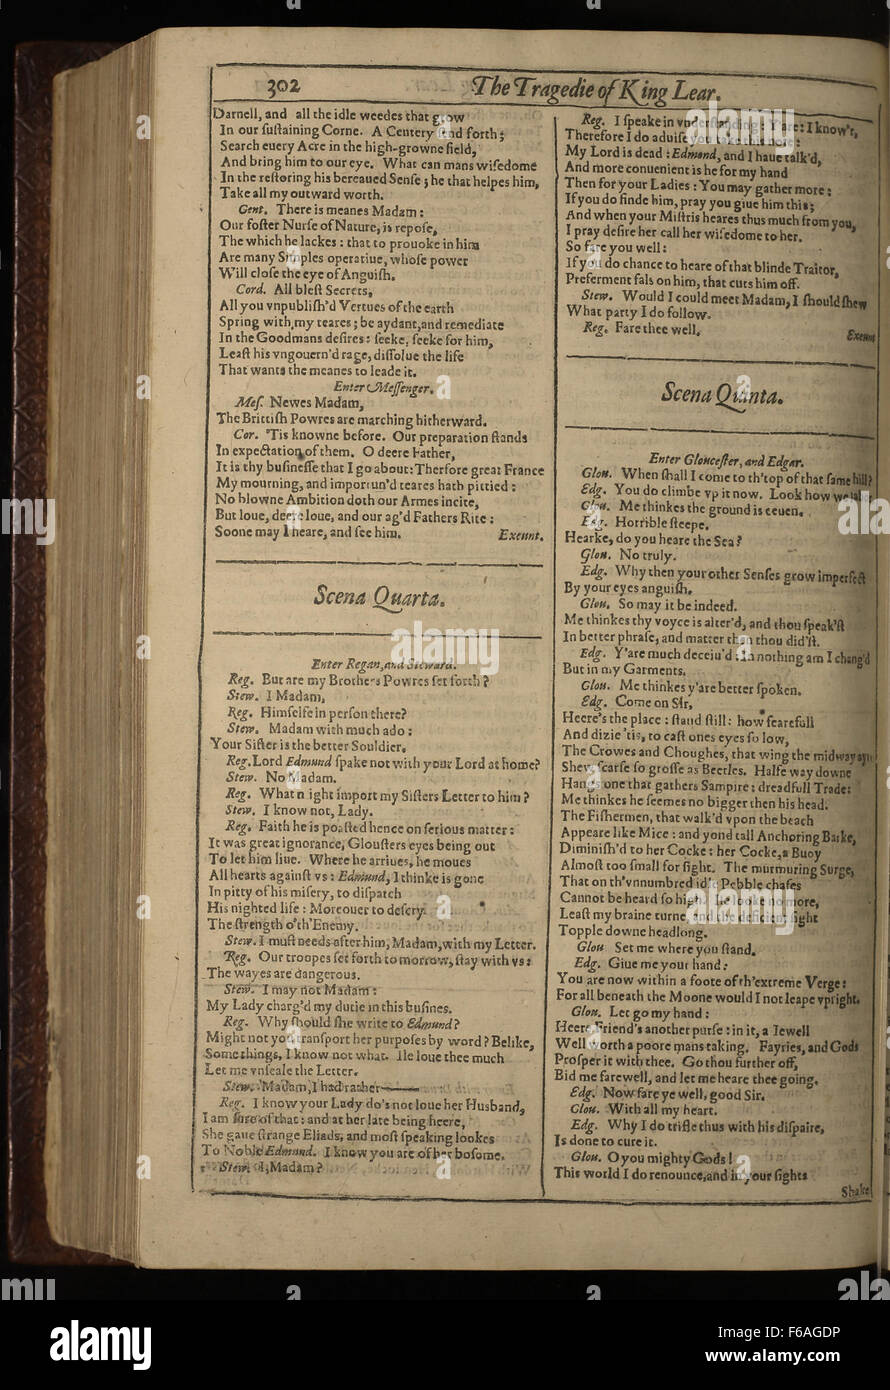 302
The Tragedie of King Lear.
Darnell, and all the idle weedes that grow
In our ſuſtaining Corne. A Centery ſend forth;
Search euery Acre in the high-growne field,
And bring him to our eye. What can mans wiſedome
In the reſtoring his bereaued Senſe; he that helpes him,
Take all my outward worth.
Gent. There is meanes Madam:
Our foſter Nurſe of Nature, is repoſe,
The which he lackes: that to prouoke in him
Are many Simples operatiue, whoſe power
Will cloſe the eye of Anguiſh.
Cord. All bleſt Secrets,
All you vnpubliſh'd Vertues of the earth
Spring with my teares; be aydant, and remediate
In the Goodmans deſires: ſeeke, ſeeke for him,
Leaſt his vngouern'd rage, diſſolue the life
That wants the meanes to leade it.
Enter Meſſenger.
Meſ. Newes Madam,
The Brittiſh Powres are marching hitherward.
Cor. 'Tis knowne before. Our preparation ſtands
In expectation of them. O deere Father,
It is thy buſineſſe that I go about: Therfore great France
My mourning, and importun'd teares hath pittied:
No blowne Ambition doth our Armes incite,
But loue, deere loue, and our ag'd Fathers Rite:
Soone may I heare, and ſee him. Exeunt.
Scena Quarta.
Enter Regan, and Steward.
Reg. But are my Brothers Powres ſet forth?
Stew. I Madam,
Reg. Himſelfe in perſon there?
Stew. Madam with much ado:
Your Siſter is the better Souldier.
Reg. Lord Edmund ſpake not with your Lord at home?
Stew. No Madam.
Reg. What night import my Siſters Letter to him?
Stew. I know not, Lady.
Reg. Faith he is poaſted hence on ſerious matter:
It was great ignorance, Glouſters eyes being out
To let him liue. Where he arriues, he moues
All hearts againſt vs: Edmund, I thinke is gone
In pitty of his miſery, to diſpatch
His nighted life: Moreouer to deſcry.
The ſtrength o'th'Enemy.
Stew. I muſt needs after him, Madam, with my Letter.
Reg. Our troopes ſet forth to morrow, ſtay with vs:
The wayes are dangerous.
Stew. I may not Madam:
My Lady charg'd my dutie in this buſines.
Reg. Why ſhould ſhe write to Edmund?
Might not you tranſport her purpoſes by word? Belike,
Some things, I know not what. Ile loue thee much
Let me vnſeale the Letter.
Stew. Madam, I had rather——
Reg. I know your Lady do's not loue her Husband,
I am ſure of that: and at her late being heere,
She gaue ſtrange Eliads, and moſt ſpeaking lookes
To Noble Edmund. I know you are of her boſome.
Stew. I, Madam?
Reg. I ſpeake in vnderſtanding: Y'are: I know't,
Therefore I do aduiſe you take this note:
My Lord is dead: Edmond, and I haue talk'd,
And more conuenient is he for my hand
Then for your Ladies: You may gather more:
If you do finde him, pray you giue him this;
And when your Miſtris heares thus much from you,
I pray deſire her call her wiſedome to her.
So fare you well:
If you do chance to heare of that blinde Traitor,
Preferment fals on him, that cuts him off.
Stew. Would I could meet Madam, I ſhould ſhew
What party I do follow.
Reg. Fare thee well. Exeunt
Scena Quinta.
Enter Glouceſter, and Edgar.
Glou. When ſhall I come to th'top of that ſame hill?
Edg. You do climbe vp it now. Look how we
Glou. Me thinkes the ground is eeuen.
Edg. Horrible ſteepe.
Hearke, do you heare the Sea?
Glou. No truly.
Edg. Why then your other Senſes grow imperfect
By your eyes anguiſh.
Glou. So may it be indeed.
Me thinkes thy voyce is alter'd, and thou ſpeak'ſt
In better phraſe, and matter then thou did'ſt.
Edg. Y'are much deceiu'd: In nothing am I chang'd
But in my Garments.
Glou. Me thinkes y'are better ſpoken.
Edg. Come on Sir,
Heere's the place: ſtand ſtill: how fearefull
And dizie 'tis, to caſt ones eyes ſo low,
The Crowes and Choughes, that wing the midway ayre
Shew ſcarſe ſo groſſe as Beetles. Halfe way downe
Hangs one that gathers Sampire: dreadfull Trade:
Me thinkes he ſeemes no bigger then his head.
The Fiſhermen, that walk'd vpon the beach
Appeare like Mice: and yond tall Anchoring Barke,
Diminiſh'd to her Cocke: her Cocke, a Buoy
Almoſt too ſmall for ſight. The murmuring Surge,
That on th'vnnumbred idle Pebble chafes
Cannot be heard ſo high. Ile looke no more,
Leaſt my braine turne, and the deficient ſight
Topple downe headlong.
Glou Set me where you ſtand.
Edg. Giue me your hand:
You are now within a foote of th'extreme Verge:
For all beneath the Moone would I not leape vpright.
Glou. Let go my hand:
Heere Friend's another purſe: in it, a Iewell
Well worth a poore mans taking. Fayries, and Gods
Proſper it with thee. Go thou further off,
Bid me farewell, and let me heare thee going.
Edg. Now fare ye well, good Sir.
Glou. With all my heart.
Edg. Why I do trifle thus with his diſpaire,
Is done to cure it.
Glou. O you mighty Gods!
This world I do renounce, and in your ſights
Shake
alamy
Image ID: F6AGDP
www.alamy.com